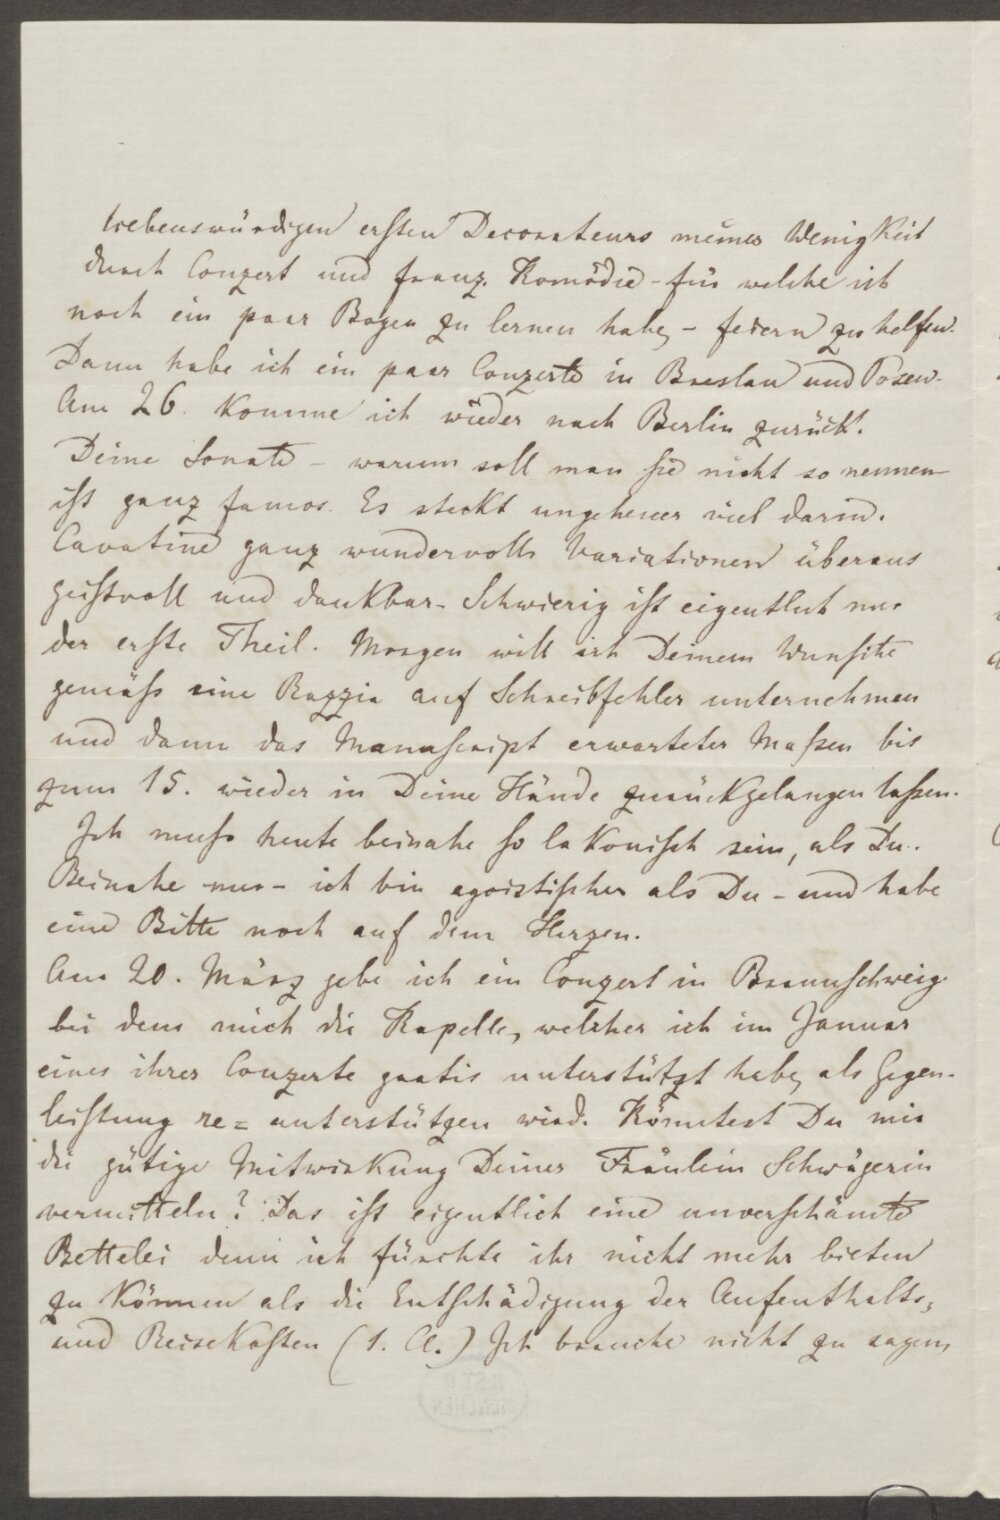 liebenswürdigen ersten Decorateurs meiner Wenigkeit
durch Conzert und franz. Komödie - für welche ich
noch ein paar Bogen zu lernen habe, - feiern zu helfen.
Dann habe ich ein paar Conzerte in Breslau und Posen.
Am 26. komme ich wieder nach Berlin zurück.
Deine Sonate - warum soll man sie nicht so nennen -
ist ganz famos. Es steckt ungeheuer viel darin.
Cavatine ganz wundervoll, Variationen überaus
geistvoll und dankbar. Schwierig ist eigentlich nur
der erste Theil. Morgen will ich Deinem Wunsche
gemäss eine Razzia auf Schreibfehler unternehmen
und dann das Manuscript erwarteter Massen bis
zum 15. wieder in Deine Hände zurückgelangen lassen.
Ich muss heute beinahe so lakonisch sein, als Du.
Beinahe nur - ich bin egoistischer als Du - und habe
eine Bitte noch auf dem Herzen.
Am 20. März gebe ich ein Conzert in Braunschweig
bei dem mich die Kapelle, welcher ich im Januar
eines ihrer Conzerte gratis unterstützt habe, als Gegen-
leistung re= unterstützen wird. Könntest Du mir
die gütige Mitwirkung Deiner Fräulein Schwägerin
vermitteln? Das ist eigentlich eine unverschämte
Bettelei denn ich fürchte ihr nicht mehr bieten
zu können als die Entschädigung der Aufenthalts-
und Reisekosten (1. Cl.) Ich brauche nicht zu sagen,